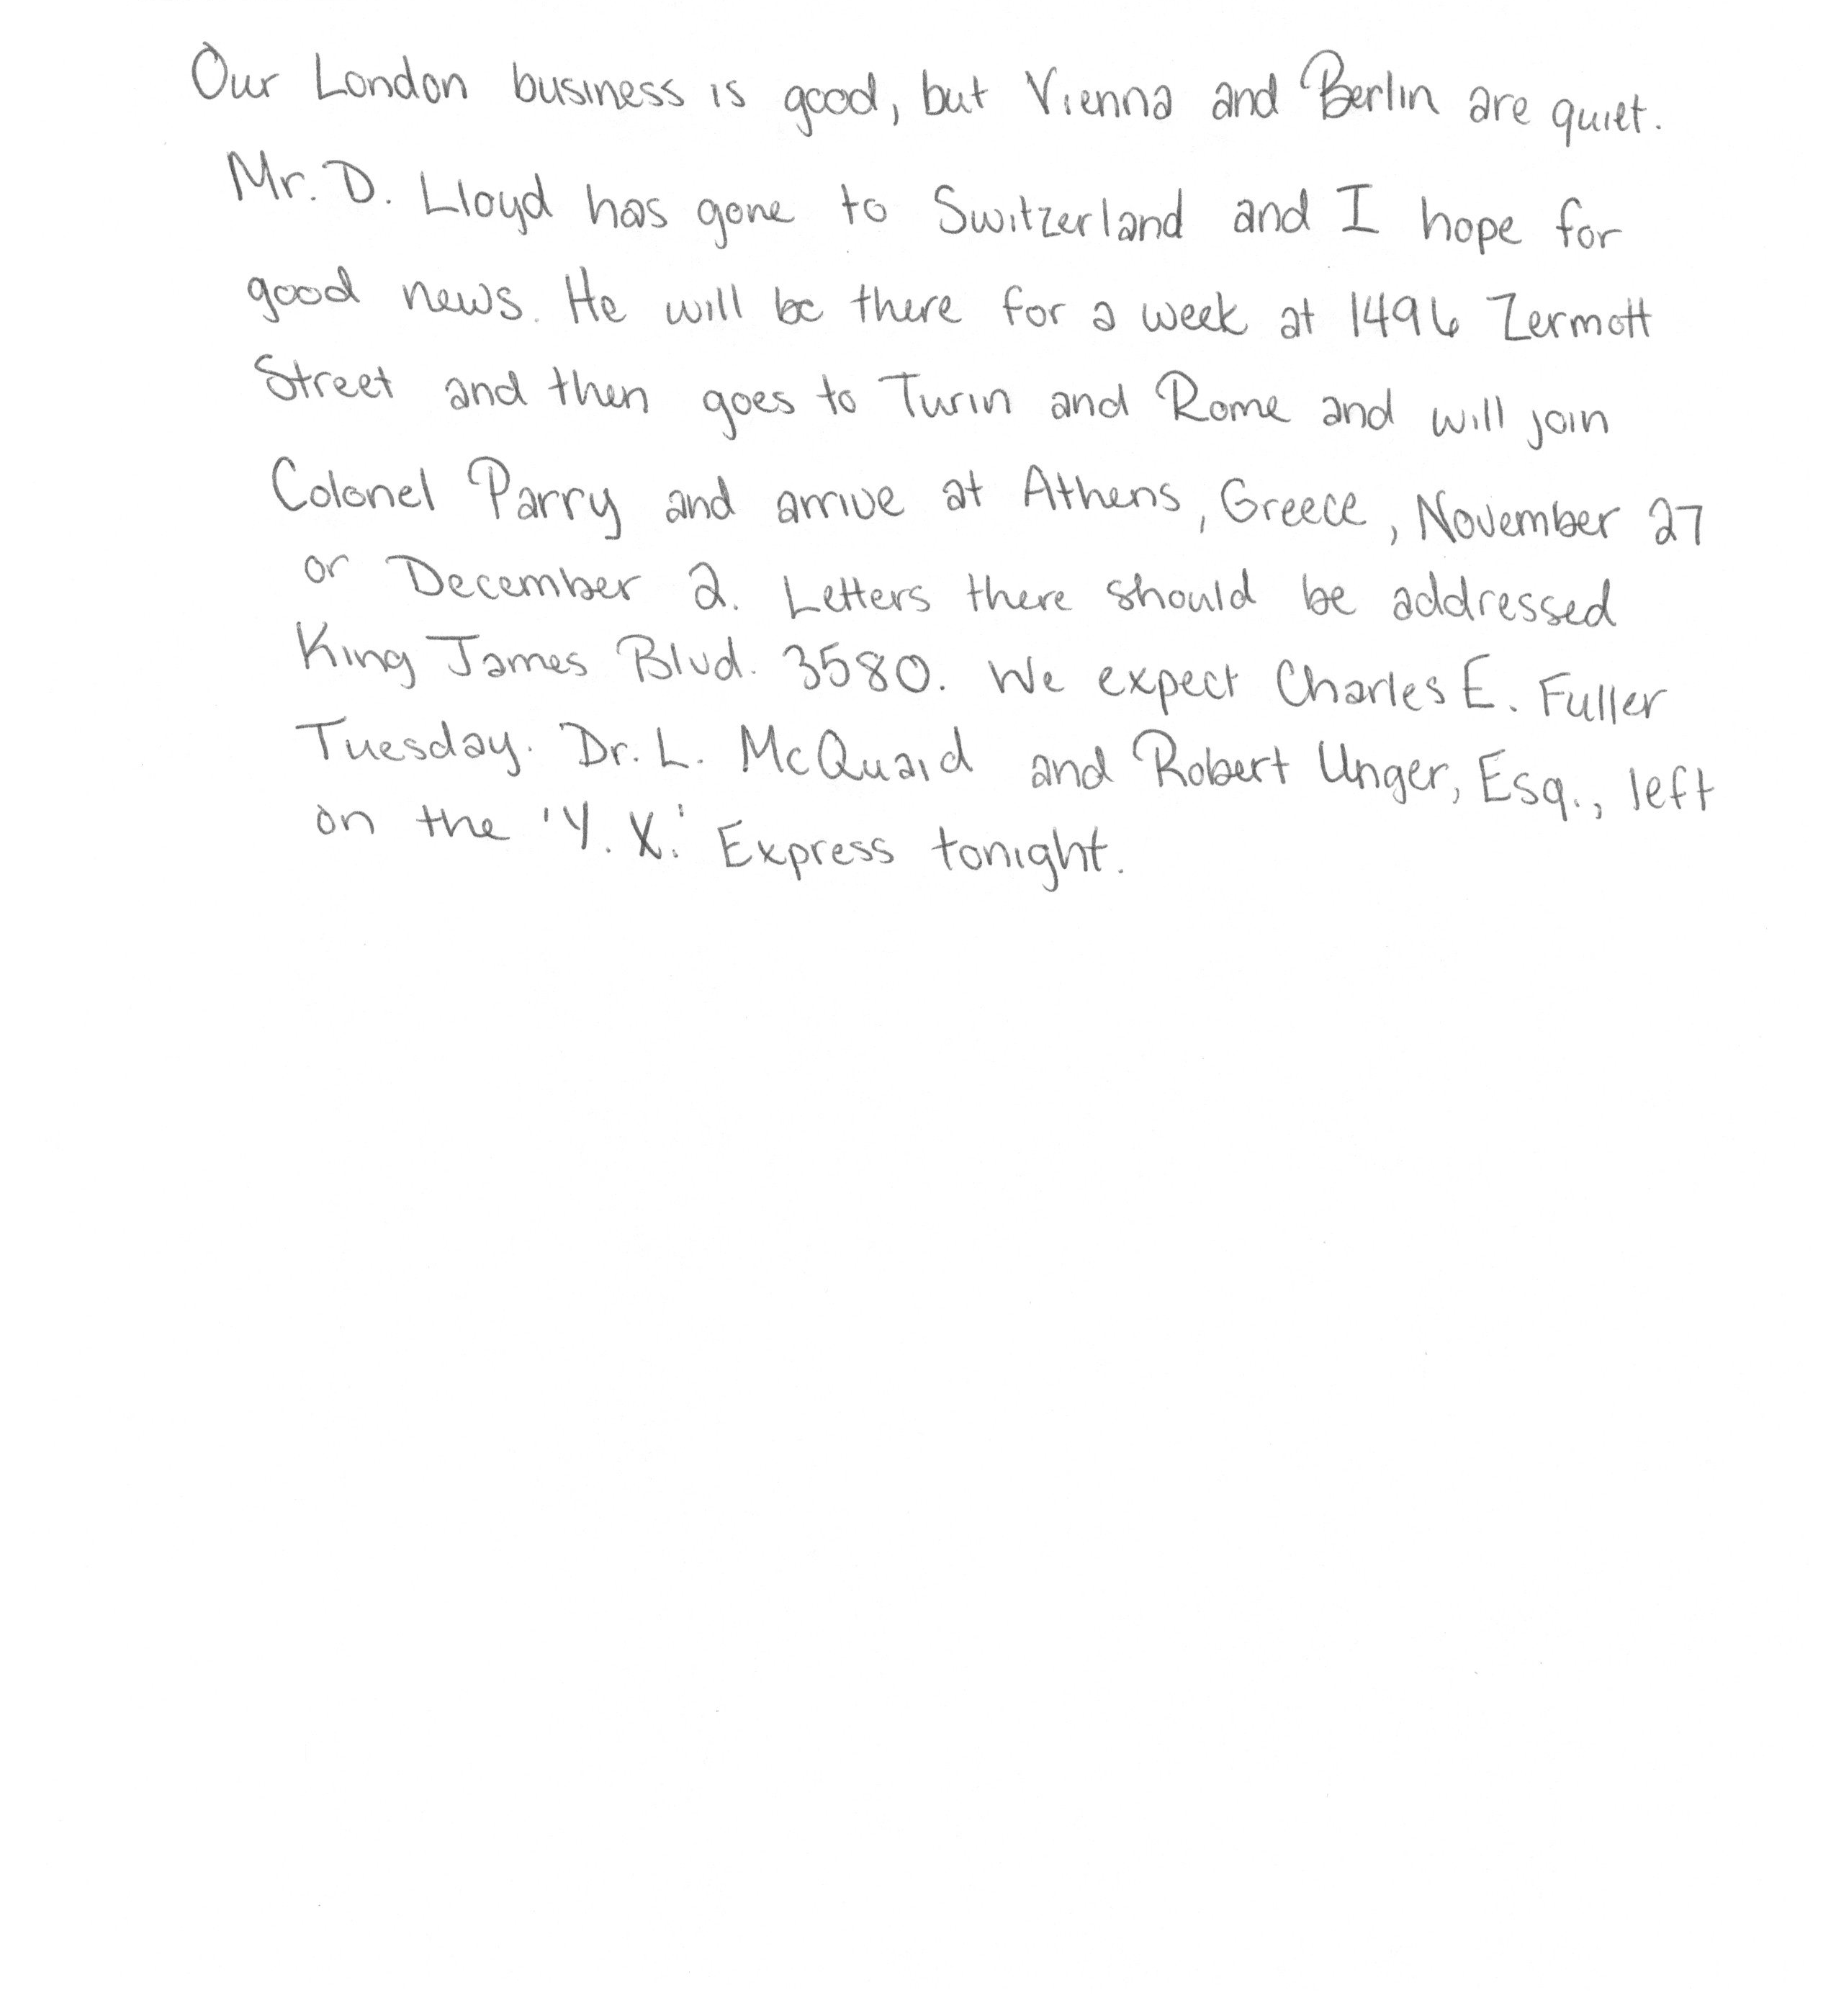 Our London business is good, but Vienna and Berlin are quiet.
Mr. D. Lloyd has gone to Switzerland and I hope for
good news. He will be there for a week at 1496 Zermott
Street and then goes to Turin and Rome and will join
Colonel Parry and arrive at Athens, Greece, November 27
or December 2. Letters there should be addressed
King James Blvd. 3580. We expect Charles E. Fuller
Tuesday. Dr. L. McQuaid and Robert Unger, Esq., left
on the 'Y. X.' Express tonight.